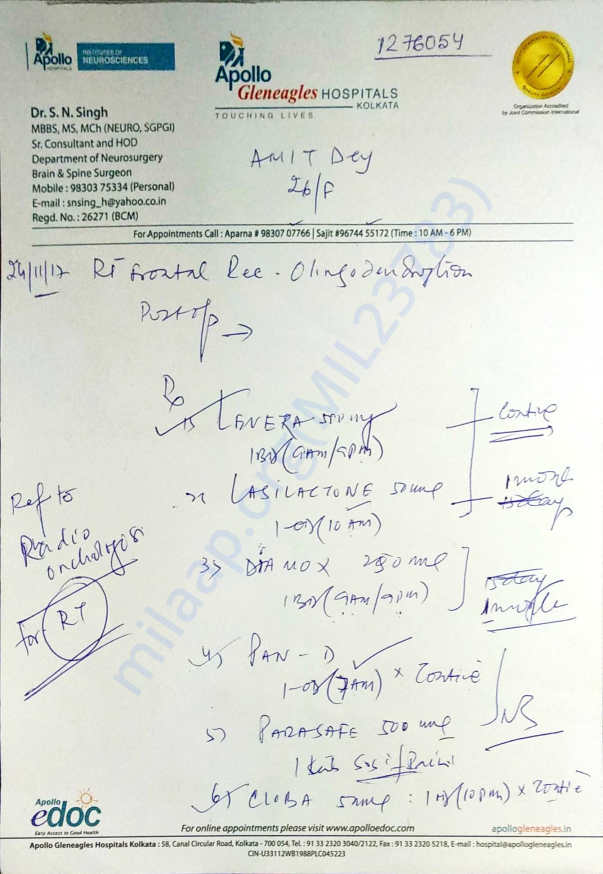 Apollo
HOSPITALS
INSTITUTES OF
NEUROSCIENCES
Apollo
Gleneagles HOSPITALS
KOLKATA
TOUCHING LIVES
1276054
Organization Accredited
by Joint Commission International
Dr. S. N. Singh
MBBS, MS, MCh (NEURO, SGPGI)
Sr. Consultant and HOD
Department of Neurosurgery
Brain & Spine Surgeon
Mobile : 98303 75334 (Personal)
E-mail : snsing_h@yahoo.co.in
Regd. No. : 26271 (BCM)
AMIT Dey
26/F
For Appointments Call : Aparna # 98307 07766 | Sajit #96744 55172 (Time : 10 AM - 6 PM)
24/11/17 RT frontal Rec -
Post op →
Rx
1) LEVERA 500 mg
1 BD (9AM/9PM)
2) LASILACTONE 50 mg
1-OD (10 AM)
3) DIAMOX 250 mg
1 BD (9AM/9PM)
4) PAN-D
1-OD (7AM) ×
5) PARASAFE 500 mg
1 tab SOS if
6) CLOBA 5 mg : (10pm) ×
Ref to
Radio
for RT
milaap.org (MIL23783)
Apollo
edoc
Easy Access to Good Health
For online appointments please visit www.apolloedoc.com
apollogleneagles.in
Apollo Gleneagles Hospitals Kolkata : 58, Canal Circular Road, Kolkata - 700 054, Tel. : 91 33 2320 3040/2122, Fax : 91 33 2320 5218, E-mail : hospital@apollogleneagles.in
CIN-U33112WB1988PLC045223